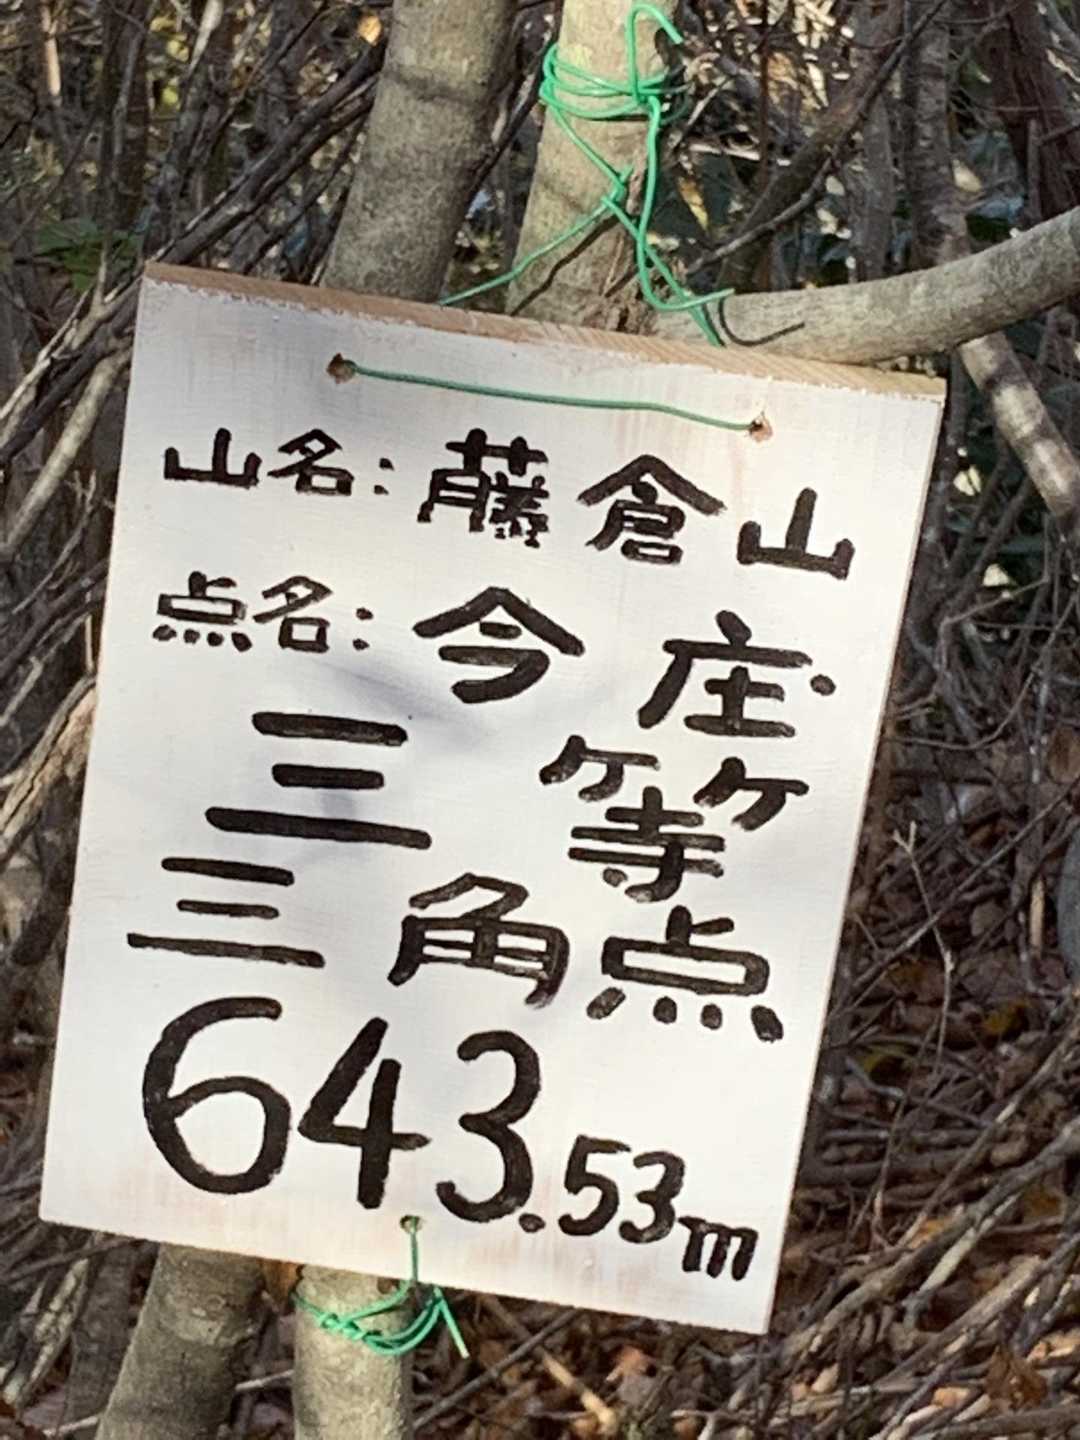 山名:藤倉山
点名:今庄
三等
三角点
643.53m